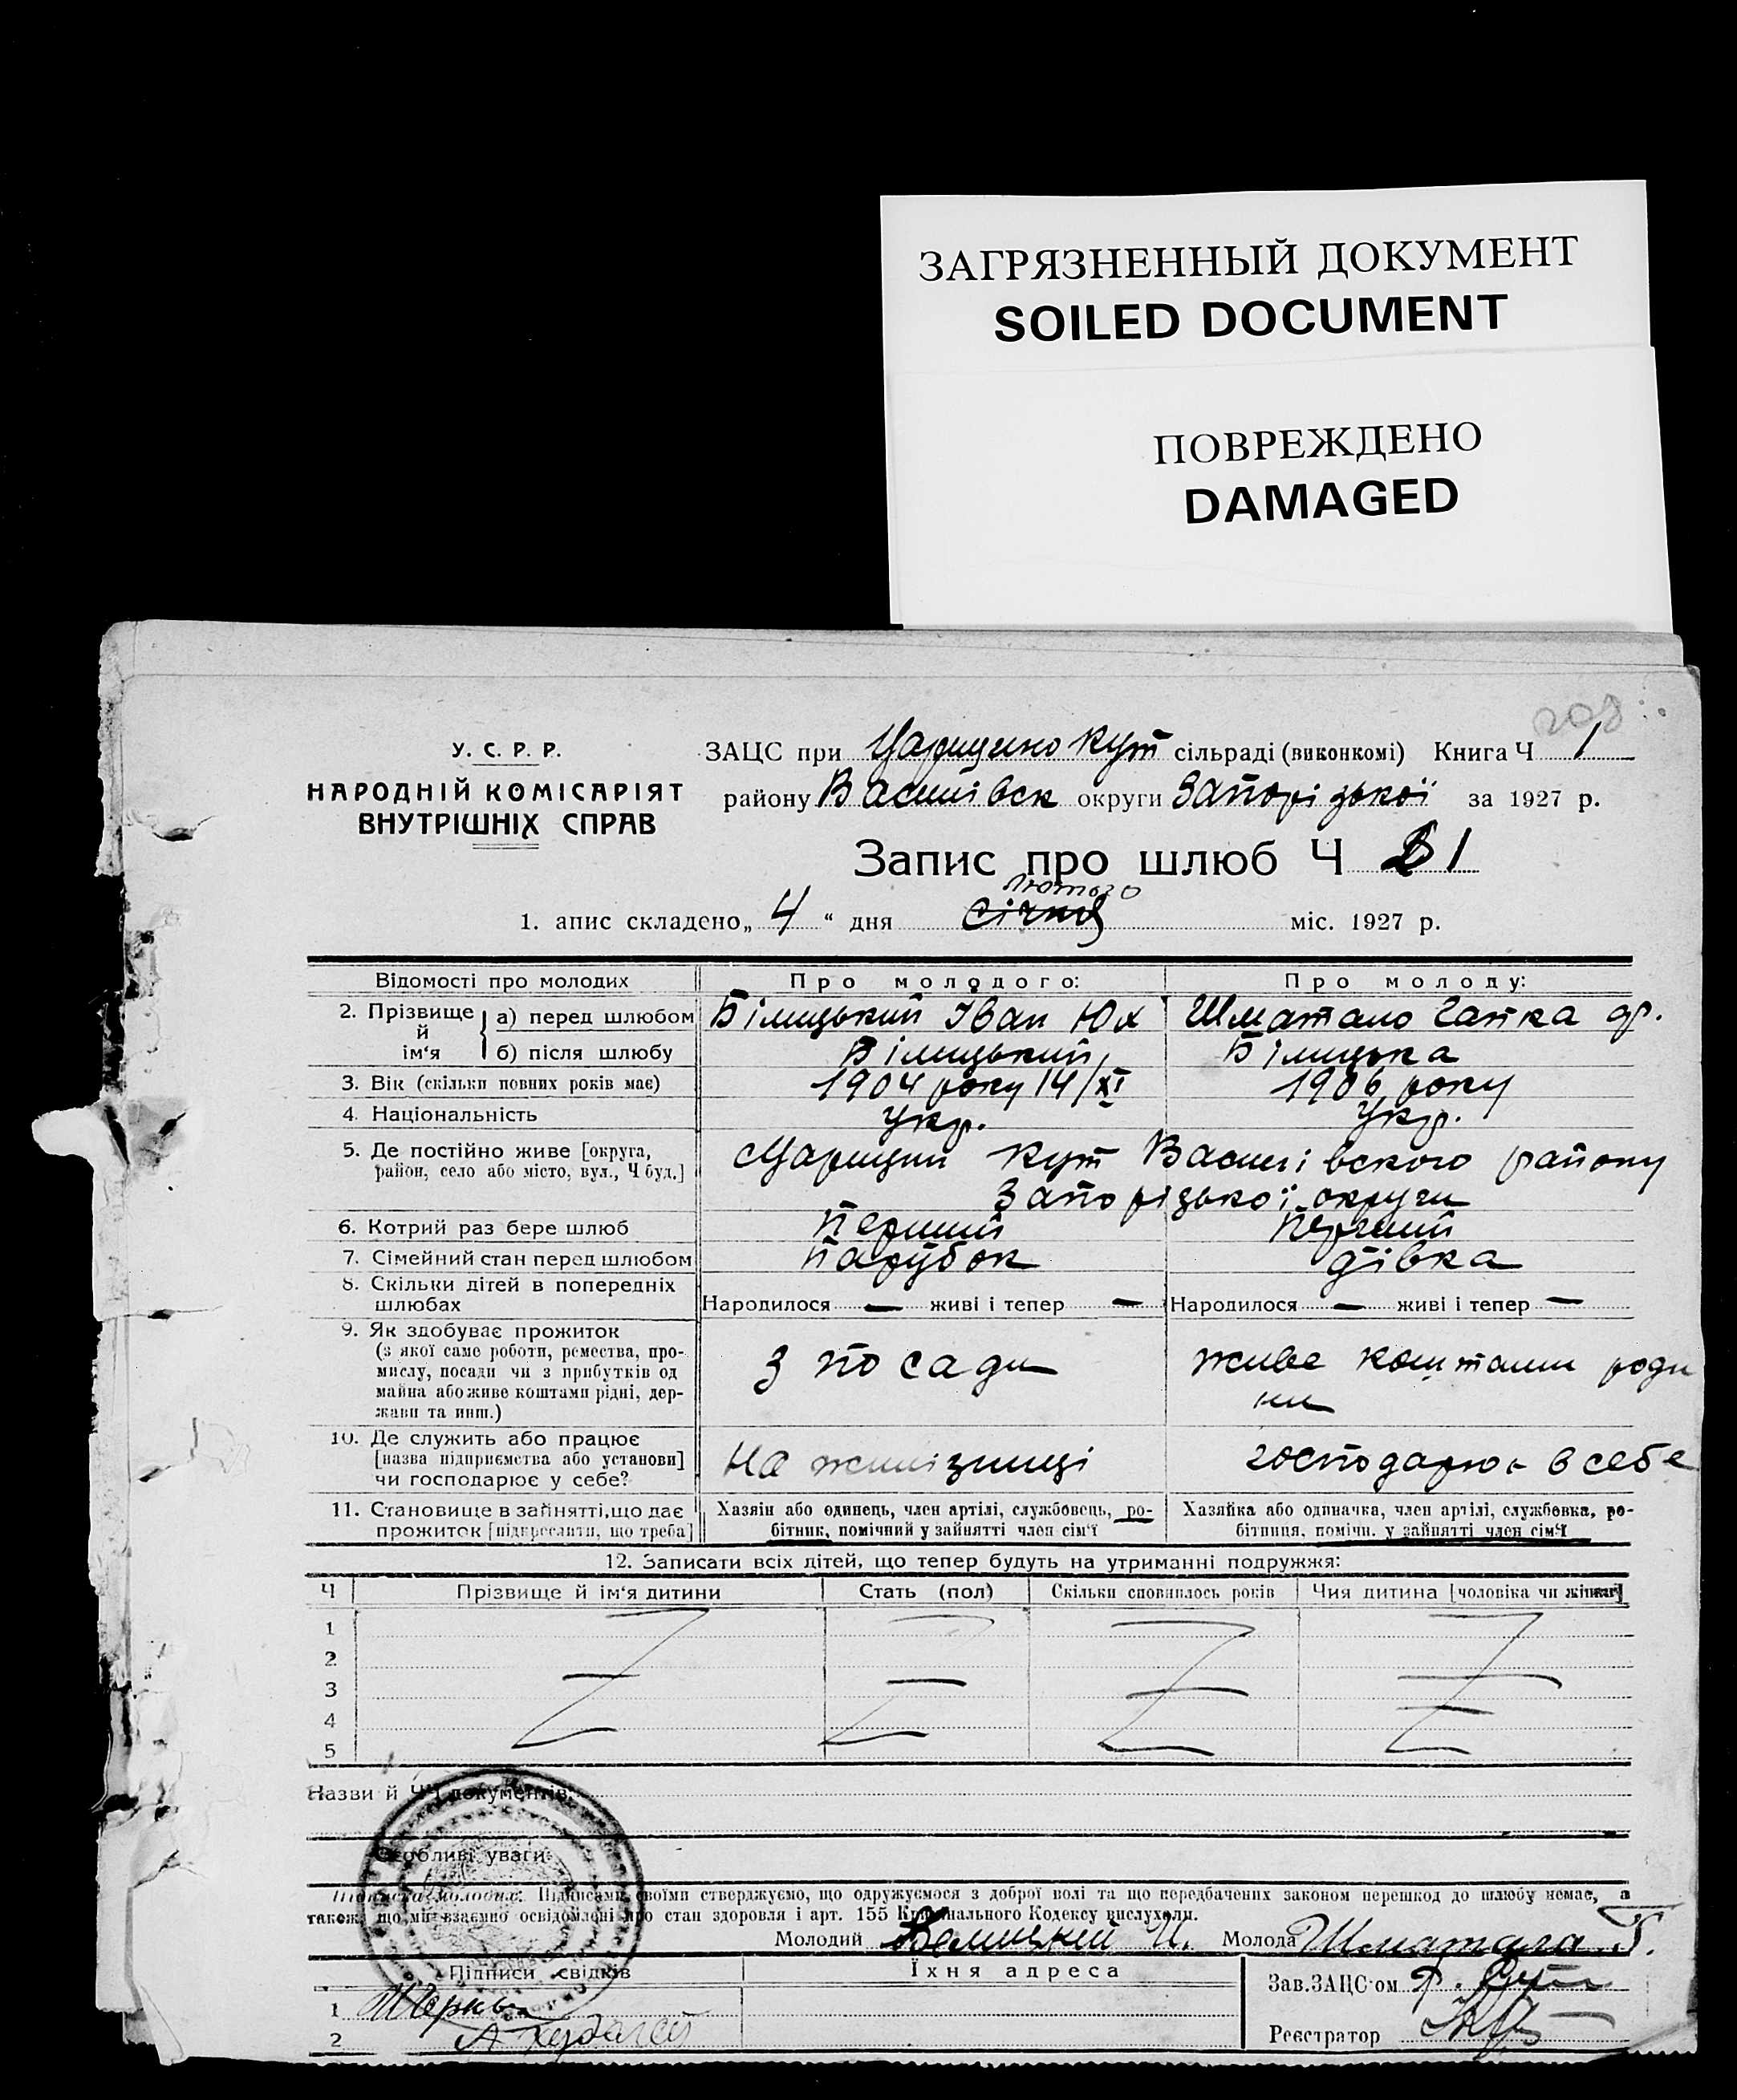 ЗАГРЯЗНЕННЫЙ ДОКУМЕНТ
SOILED DOCUMENT
ПОВРЕЖДЕНО
DAMAGED
208
У. С. Р. Р.
НАРОДНІЙ КОМІСАРІЯТ
ВНУТРІШНІХ СПРАВ
ЗАЦС при Царицино Кут сільраді (виконкомі) Книга Ч 1
району Василівск округи Запорізької за 1927 р.
Запис про шлюб Ч 1
лютого
1. апис складено „ 4 “ дня січня міс. 1927 р.
Відомості про молодих Про молодого: Про молоду:
2. Прізвище й ім‘я а) перед шлюбом Білицький Іван Юх Шматало Гапка др.
б) після шлюбу Білицький Білицька
3. Вік (скільки повних років має) 1904 року 14/XI 1906 року
4. Національність Укр. Укр.
5. Де постійно живе [округа, Царицин Кут Василівского району
район, село або місто, вул., Ч буд.]
Запорізької округи
6. Котрий раз бере шлюб Перший Перший
7. Сімейний стан перед шлюбом парубок дівка
8. Скільки дітей в попередніх
шлюбах Народилося — живі і тепер — Народилося — живі і тепер —
9. Як здобуває прожиток
(з якої саме роботи, ремества, про-
мислу, посади чи з прибутків од з посади живе коштами роди
майна або живе коштами рідні, дер- ни
жави та инш.)
10. Де служить або працює
[назва підприємства або установи] На желізниці господарює в себе
чи господарює у себе?
11. Становище в зайнятті, що дає Хазяїн або одинець, член артілі, службовець, ро- Хазяйка або одиначка, член артілі, службовка, ро-
прожиток [підкреслити, що треба] бітник, помічний у зайнятті член сім‘ї бітниця, помічн. у зайнятті член сім‘ї
12. Записати всіх дітей, що тепер будуть на утриманні подружжя:
Ч Прізвище й ім‘я дитини Стать (пол) Скільки сповнилось років Чия дитина [чоловіка чи жінки]
1
2
3
4
5
Назви й ЧЧ документів:
Особливі уваги:
Підписи молодих: Підписами своїми стверджуємо, що одружуємося з доброї волі та що передбачених законом перешкод до шлюбу немає, а
також, що ми взаємно освідомлені про стан здоровля і арт. 155 Кримінального Кодексу вислухали.
Молодий Белицкий И. Молода Шматала Г.
Підписи свідків Їхня адреса Зав. ЗАЦС‘ом
1
2 Реєстратор